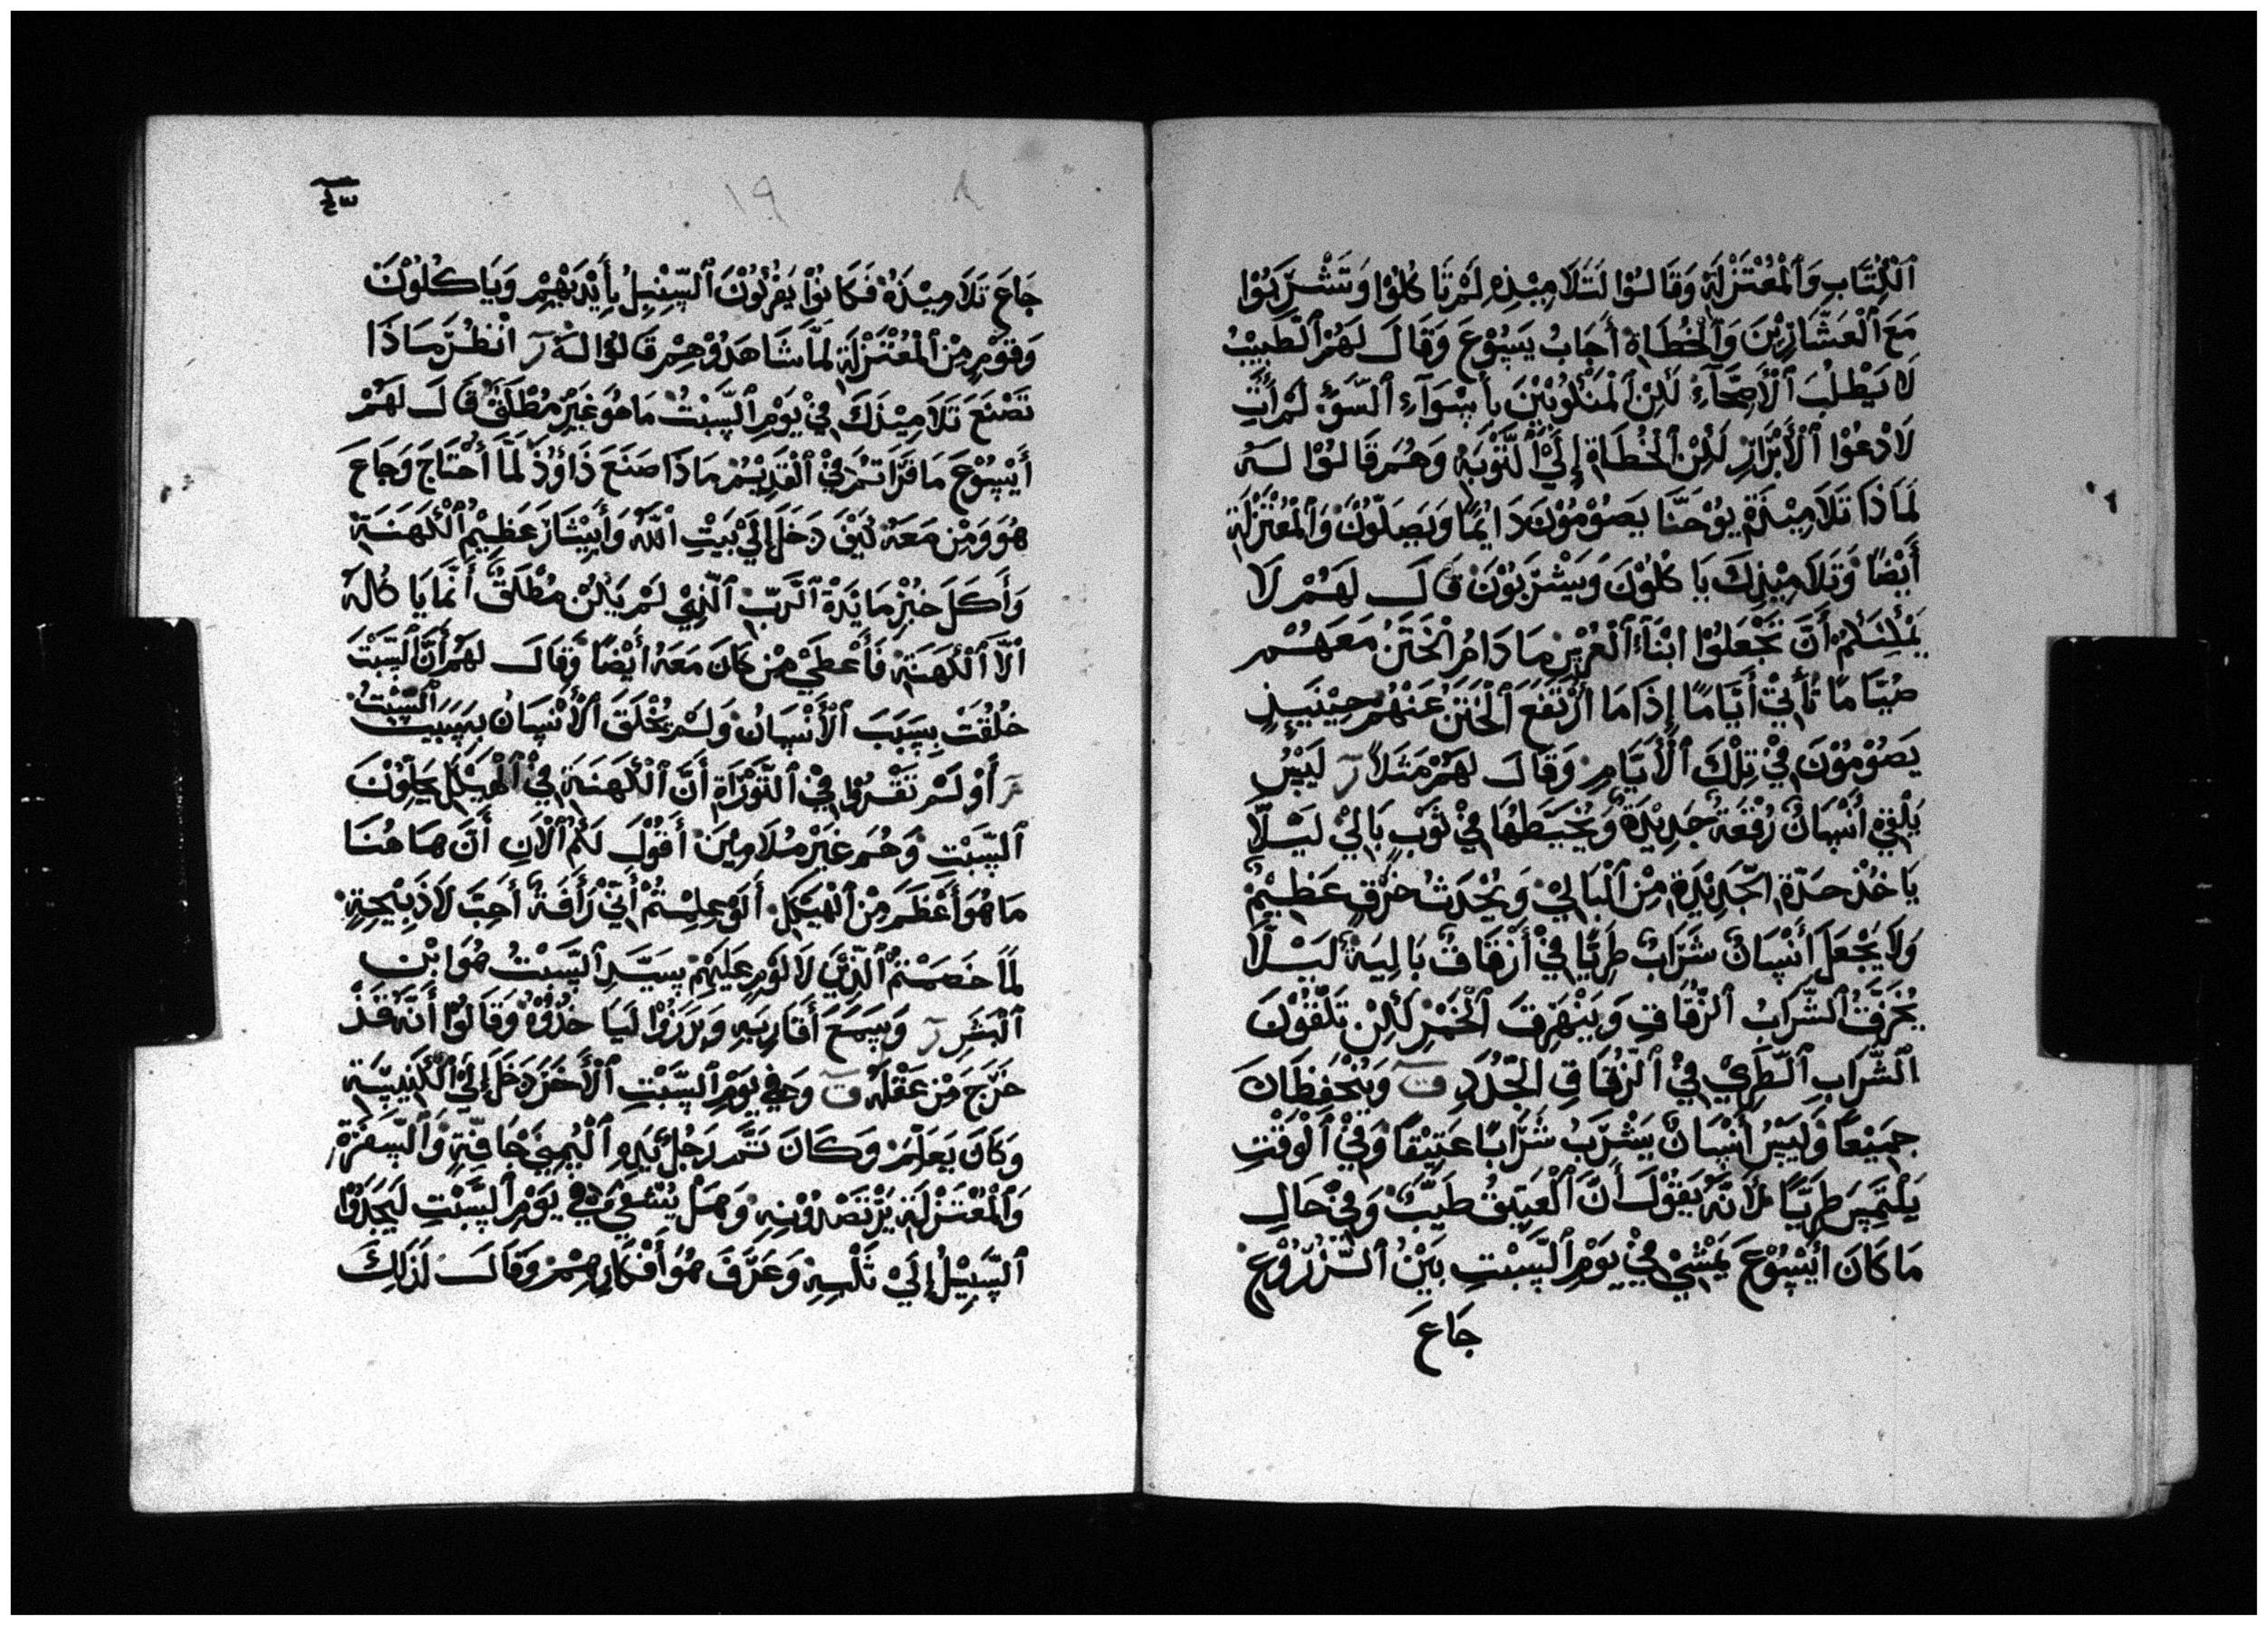 ٱلْكُتَّابِ وَٱلْمُعْتَزِلَةِ وَقَالُوْا لَتَلَامِيْذِهِ لَمْ تَاكُلُوْا وَتَشْرَبُوْا
مَعَ ٱلْعَشَّارِيْنَ وَٱلْخُطَاةِ أَجَابُ يَسُوْعَ وَقَالَ لَهُمْ ٱلطَّبِيْبُ
لَا يَطْلُبَ ٱلْأَصِحَّآءَ لَكِنِ ٱلْمَنْكُوْبِيْنَ بِأَسْوَآءِ ٱلسَّوْءِ لَمْ أَتِ
لَادْعُوْا ٱلْأَبْرَارِ لَكِنِ ٱلْخُطَاةِ إِلَيْ ٱلتَّوْبَةِ وَهُمْ قَالُوْا لَهُ
لَمَاذَا تَلَامِيْذَةِ يُوْحَنَّا يَصُوْمُوْنَ دَايْمًا وَيَصَلُّوْنَ وَٱلْمُعْتَزِلَةِ
أَيْضًا وَتَلَامِيْذِكَ يَاكُلُوْنَ وَيَشْرَبُوْنَ قَالَ لَهُمْ لَا
يَمْكِنَكُمْ أَنَّ تَجْعَلُوْا ابْنَآءَ ٱلْعُرْسِ مَادَامُ الْخَتَنُ مَعَهُمْ
صُيَّامًا تَأْتِيْ أَيَّامًا إِذَا مَا ارْتَفَعَ ٱلْخَتَنُ عَنْهُمْ حِيْنَيِذٍ
يَصُوْمُوْنَ فِيْ تِلْكَ ٱلْأَيَّامِ وَقَالَ لَهُمْ مَثَلًا رَ لَيْسَ
يَلْقِيْ أَنْسَانٌ رُقْعَةً جَدِيْدَةً وَيُخَيِّطُهَا فِيْ ثَوْبِ بَالِيْ لَيْلَّا
يَاخُذْ حَدّةِ الجَّدِيْدَةِ مِنْ ٱلْبَالِيْ وَيُحْدَثُ خَرْقٍ عَظِيْمٌ
وَلَا يَجْعَلَ أَنْسَانٌ شَرَابٌ طَرِيًّا فِيْ أَزْقَاقٌ بَالِيَةٌ لَيْلَّا
يُخَرِّقُ ٱلشَّرَابُ ٱلزُّقَاقِ وَيَنْهَرِقَ ٱلْخَمْرِ لَكِنْ تَلْقُوْنَ
ٱلشَّرَابِ ٱلطَّرِيِّ فِيْ ٱلزُّقَاقِ الجُّدُدِ ق وَيُنْحَفِظَانِ
جَمِيْعًا وَلَيْسُ أَنْسَانٌ يَشْرَبُ شَرَابًا عَتِيْقًا وَفِيْ ٱلْوَقْتِ
يَلْتَمِسَ طَرِيًّا لَأَنَّهُ يَقُوْلَ أَنَّ ٱلْعَتِيْقُ طَيِّبٌ وَفِيْ حَالِ
مَا كَانَ أَيْسُوْعَ يَمْشِيْ فِيْ يَوْمِ ٱلسَّبْتِ بَيْنُ ٱلزُّرُوْعِ
جَاعَ
١٩
٨
جَاعَ تَلَامِيْذَهُ فَكَانُوْا يَفْرُكُوْنَ ٱلسُّنْبِلُ بِأَيْدِيْهِمْ وَيَاكُلُوْنَ
وَقَوْمٍ مِنْ ٱلْمُعْتَزِلَةِ لَمَّا شَاهَدُوْهِمْ قَالُوْا لَهُ رَ انْظُرْ مَاذَا
تَصْنَعَ تَلَامِيْذَكَ فِيْ يَوْمِ ٱلسَّبْتُ مَا هُوَ غَيْرُ مُطْلَقٌ قَالَ لَهُمْ
أَيْسُوْعَ مَا قَرَاتُمْ فِيْ ٱلْقَدِيْمْ مَاذَا صَنَعَ دَاؤُدَ لَمَّا أَحْتَاجَ وَجَاعَ
هُوَ وَمِنْ مَعَهُ كَيْفَ دَخَلَ إِلَيْ بَيْتِ ٱللَّهُ وَأَبِيْثَارَ عَظِيْمُ ٱلْكَهَنَةِ
وَأَكَلَ خُبْزِ مَايِدَةِ ٱلرَّبّ ٱلَّذِيْ لَمْ يَكُنْ مُطْلَقٌ أَنَّمَا يَاكُلَهُ
ٱلَّا ٱلْكَهَنَةِ فَأَعْطَيْ مِنْ كَانَ مَعَهُ أَيْضًا وَقَالَ لَهُمْ أَنَّ ٱلسَّبْتَ
خُلُقَتْ بِسَبَبَ ٱلْأَنْسَانُ وَلَمْ يُخْلَقَ ٱلْأَنْسَانُ بِسَبَبِ ٱلسَّبْتُ
مَ أَوْ لَمْ تَقْرُوْا فِيْ ٱلتَّوْرَاةِ أَنَّ ٱلْكَهَنَةِ فِيْ ٱلْهَيْكَلِ يَحِلُّوْنَ
ٱلسَّبْتِ وَهُمْ غَيْرَ مُلَامِيْنَ أَقُوْلَ لَكُمُ ٱلْآنِ أَنَّ هَاهُنَا
مَا هُوَ أَعْظَمَ مِنْ ٱلْهَيْكَلِ أَلَوْ عِلِمْتُمْ أَنِّيْ رَأْفَةً أَحِبَّ لَا ذَبِيْحَةٍ
لَمَا خَصَمْتُمْ ٱلَّذِيْنَ لَا لَوْمِ عَلَيْهِمْ سَيِّدِ ٱلسَّبْتُ هُوَ ابْنِ
ٱلْبَشَرِ رَ وَسَمِعَ أَقَارِبَهِ وَبَرَزُوْا لَيَاخُذُوْهُ وَقَالُوْا أَنَّهُ قَدْ
خَرَجَ مِنْ عَقْلَهُ ق وَفِيْ يَوْمِ ٱلسَّبْتِ ٱلْأَخَرَ دَخَلَ إِلَيْ ٱلْكَنِيْسَةِ
وَكَانَ يَعَلِّمْ وَكَانَ ثَمَّ رَجُلٌ يَدِهِ ٱلْيُمِنيَ جَافّةٍ وَٱلسَّفَرَةْ
وَٱلْمُعْتَزِلَةِ يَرْتَصْدُوْنِهِ وَهَلْ يُشْفِيْ فِيْ يَوْمِ ٱلسَّبْتِ لَيَجَدُوْا
ٱلسَّبِيْلُ إِلَيْ ثَلْبِهِ وَعَرَّفَ هُوَ أَفْكَارِهِمْ وَقَالَ لَذَلِكَ